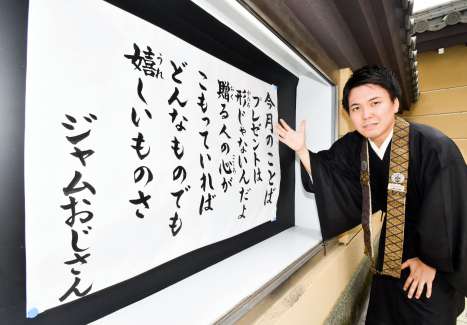 今月のことば
プレゼントは
形じゃないんだよ
贈る人の心が
こもっていれば
どんなものでも
嬉しいものさ
ジャムおじさん